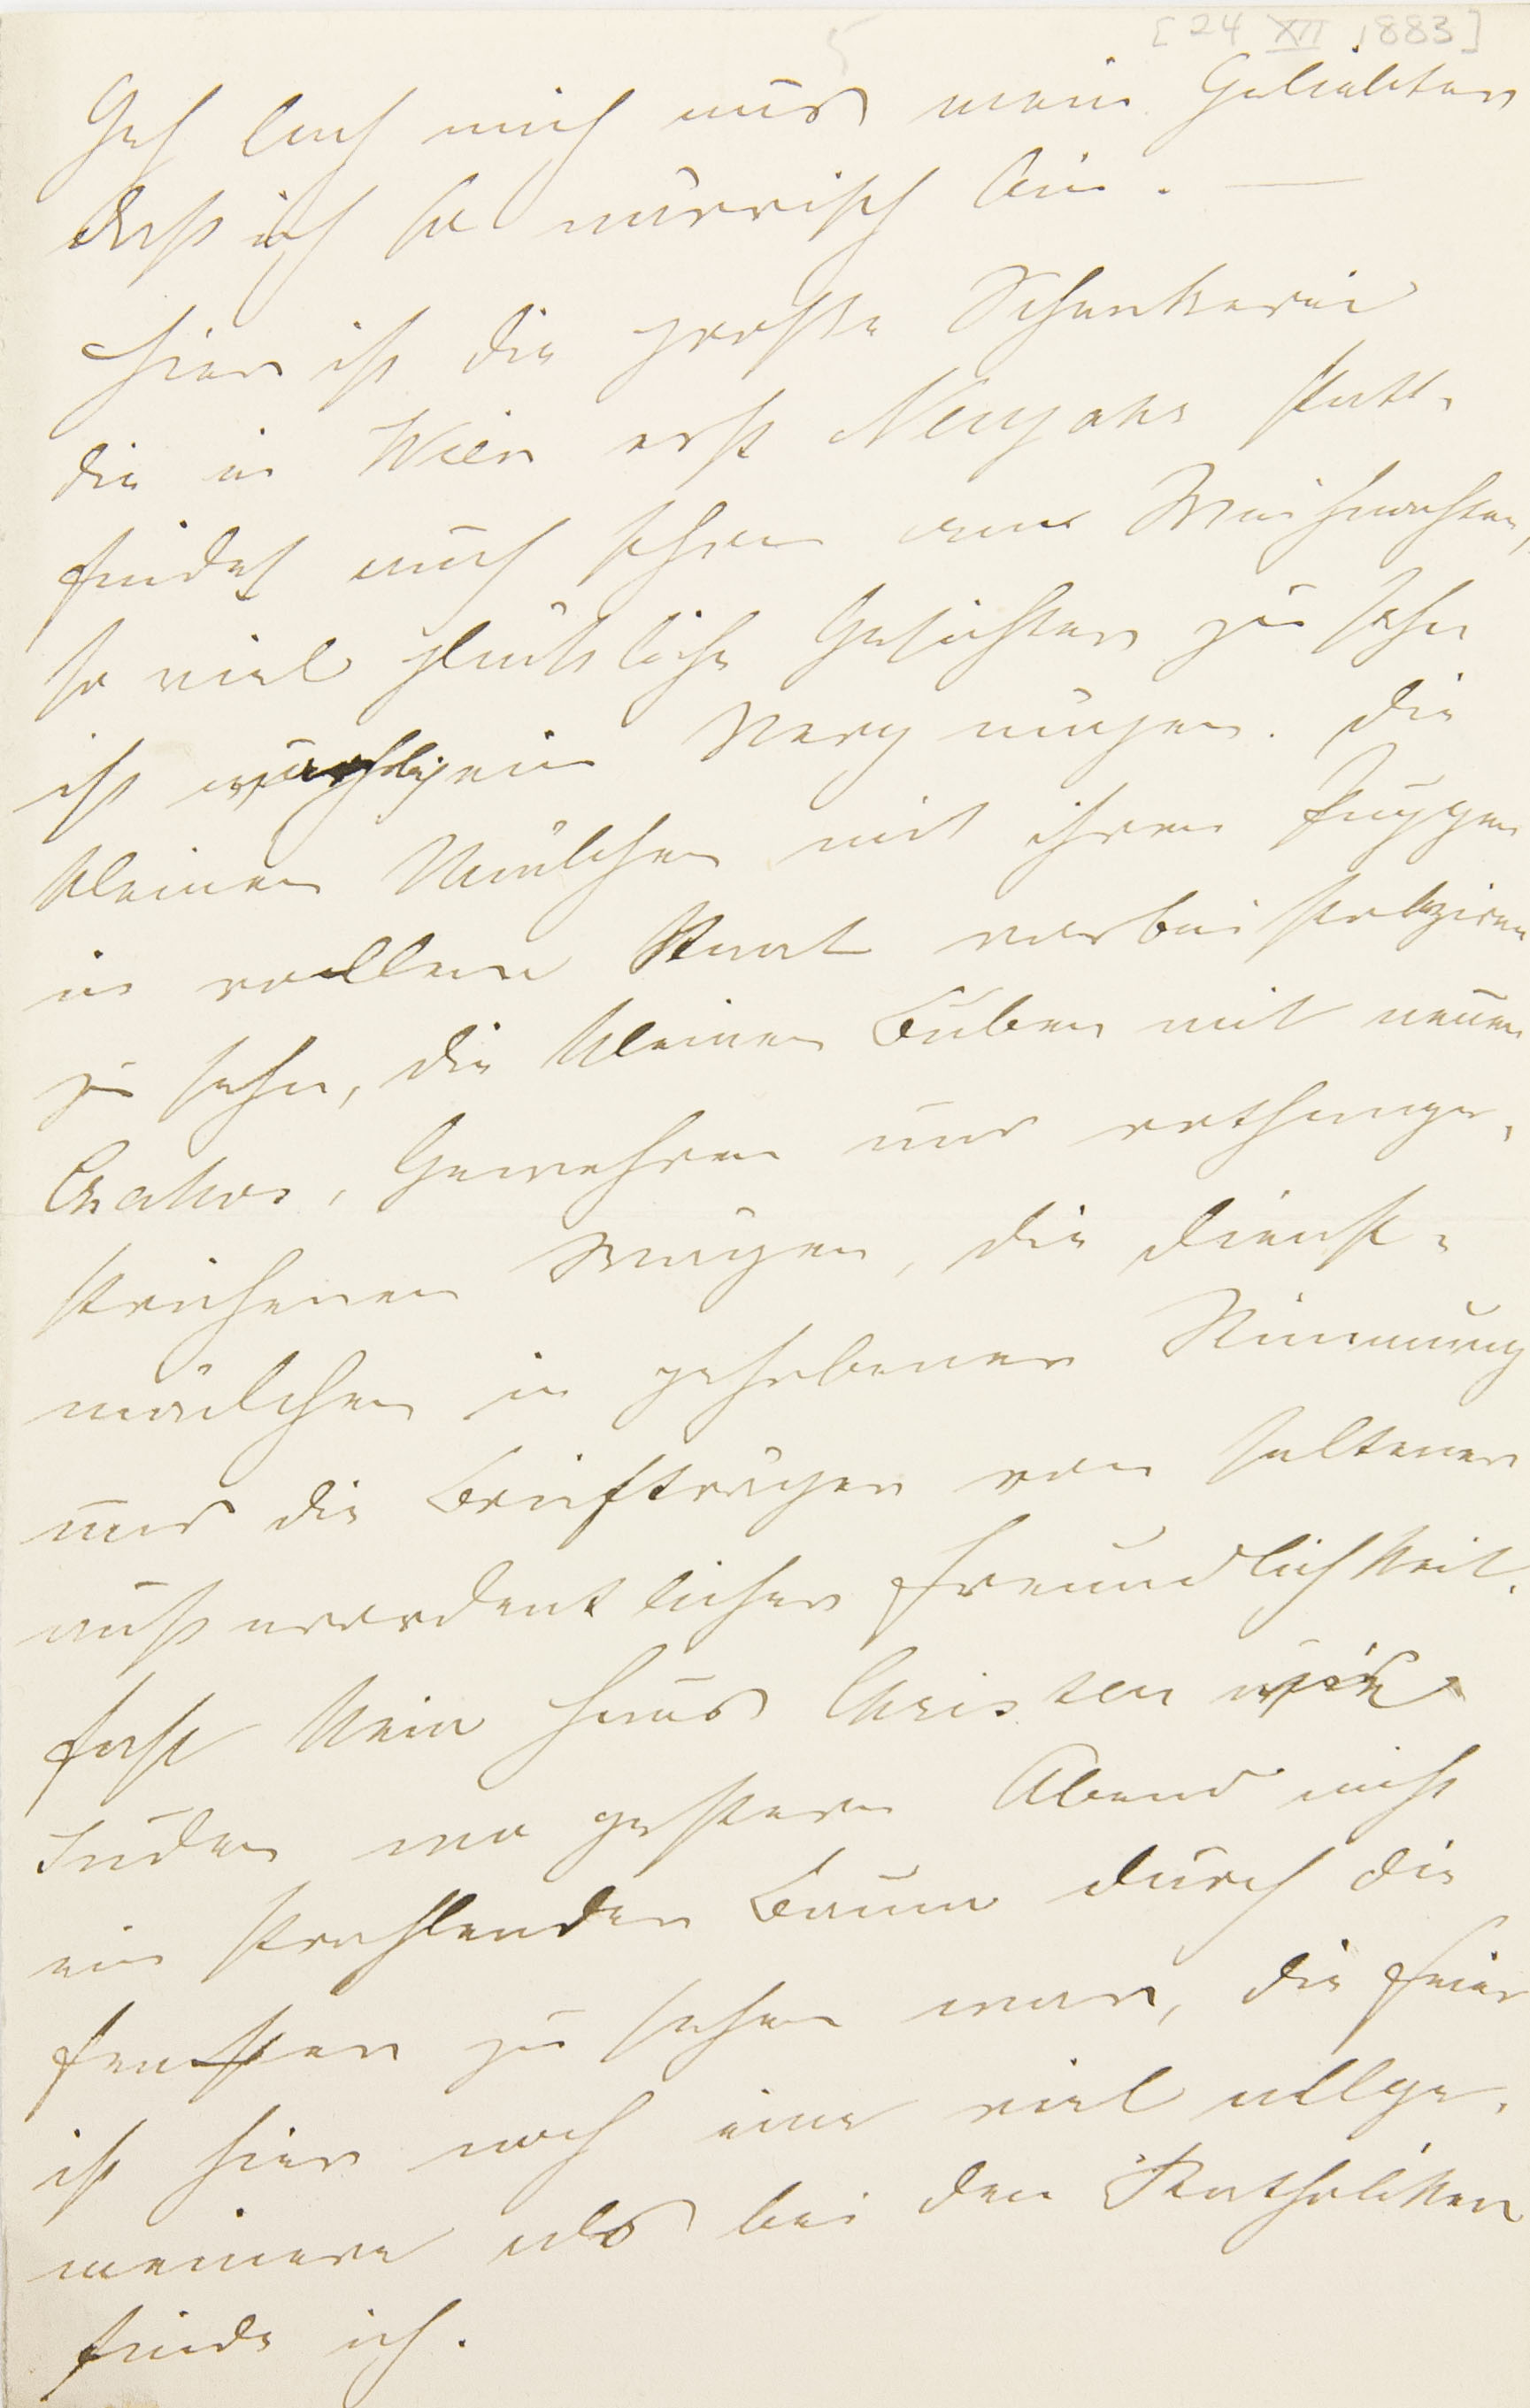 5 [24 XII 1883]
Geh lach mich aus mein Geliebter
daß ich so närrisch bin. —
Hier ist die große Schenkerei
die in Wien erst Neujahr statt-
findet auch schon am Weihnachten,
so viel glückliche Gesichter zu sehn
ist ein Vergnügen. Die
kleinen Mädchen mit ihren Puppen
in vollem Staat vorbei stolziren
zu sehn, die kleinen Buben mit neuen
Csakos, Gewehren und rothange-
strichenen Wägen, die Dienst-
mädchen in gehobener Stimmung
und die Briefträger von seltener
außerordentlicher Freundlichkeit.
Fast kein Haus Christen wie
Juden wo gestern Abend nicht
ein strahlender Baum durch die
Fenster zu sehen war, die Feier
ist hier noch eine viel allge-
meinere als bei den Katholiken
finde ich.